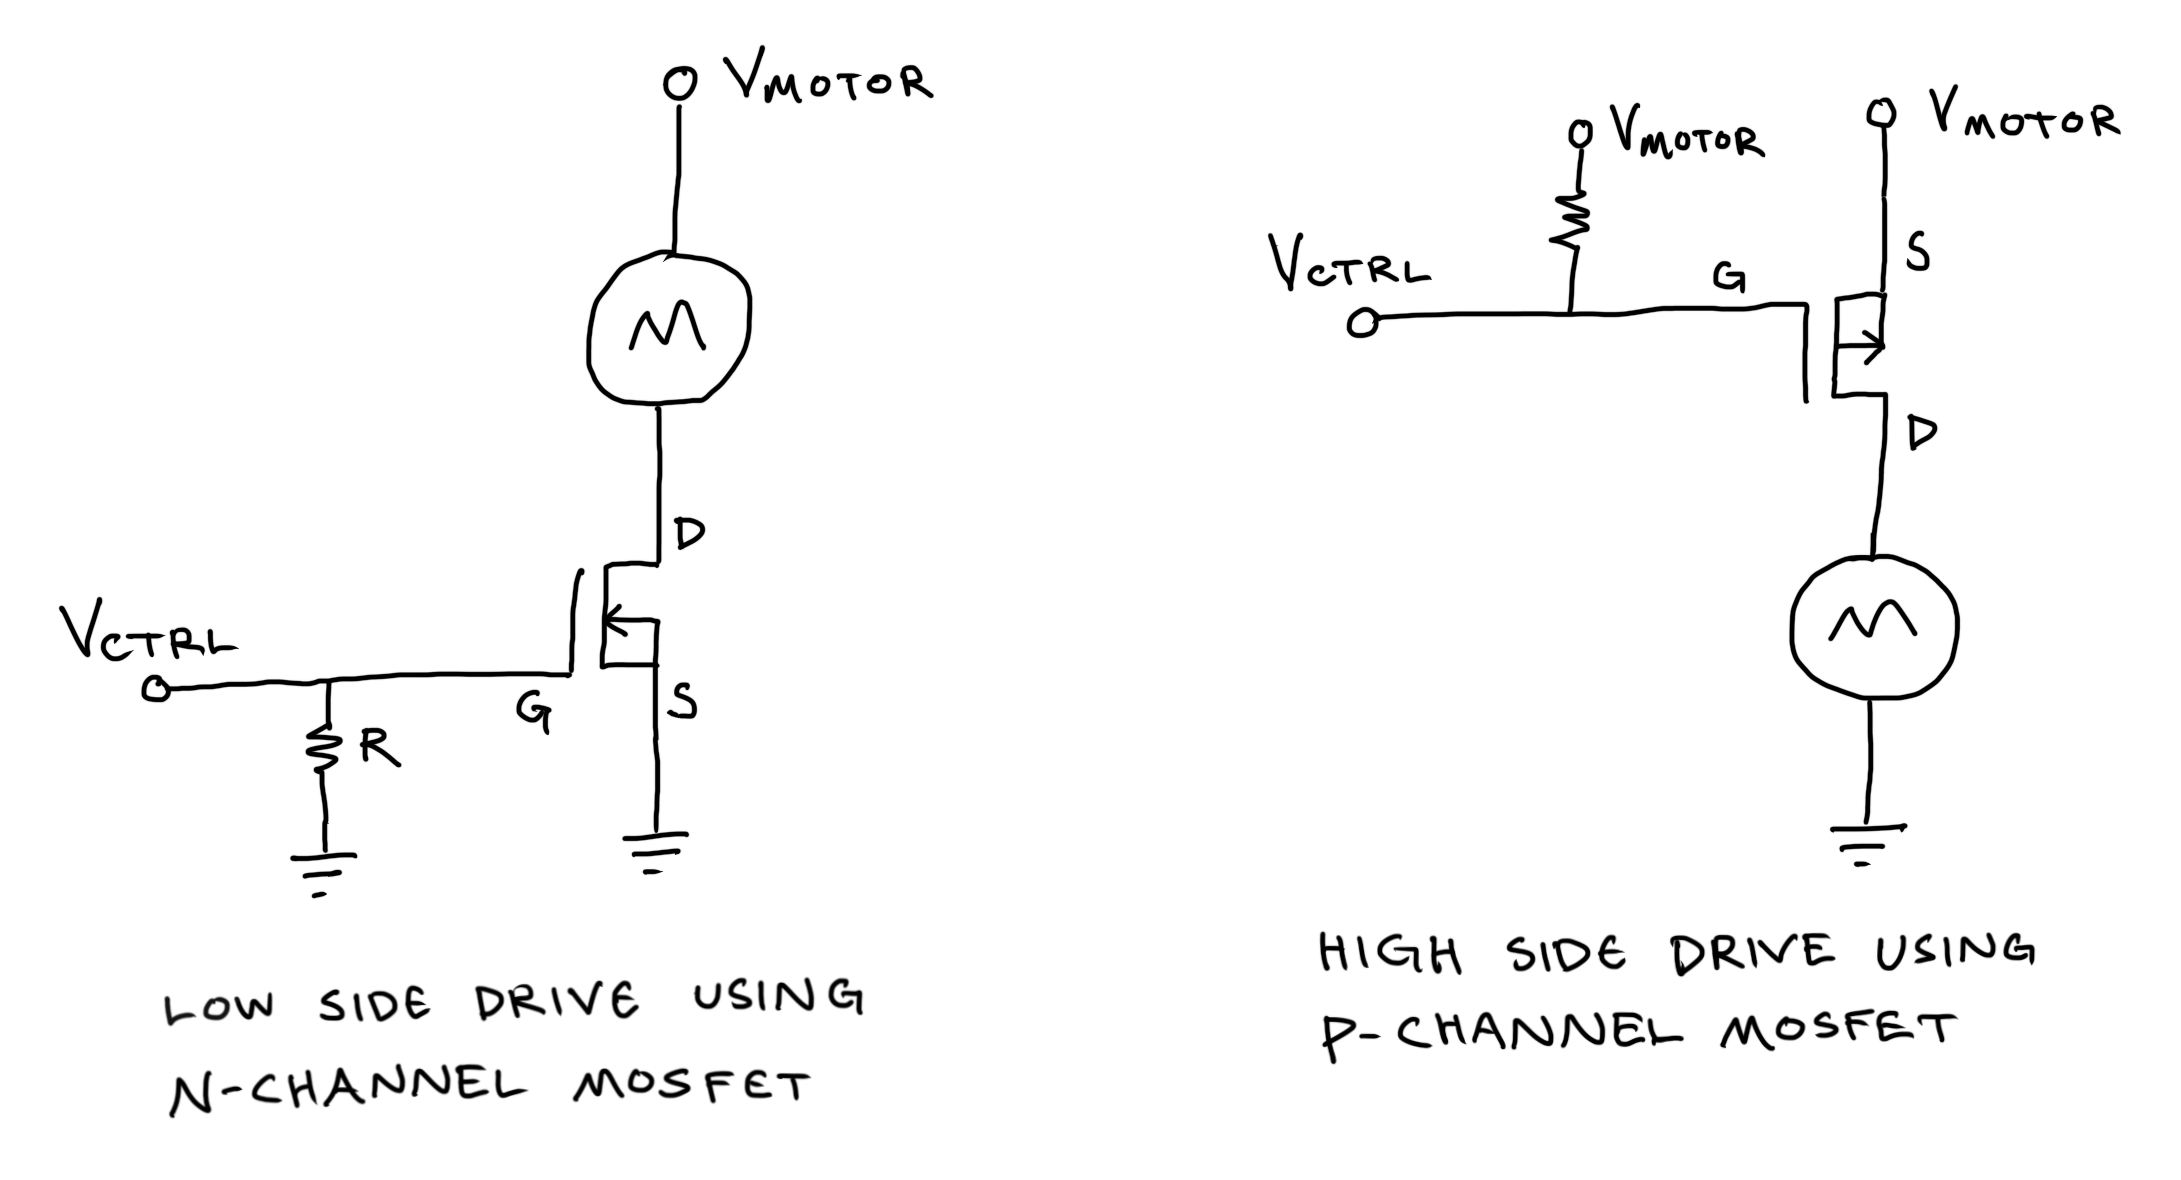 VMOTOR
M
D
VCTRL
G
S
R
LOW SIDE DRIVE USING
N-CHANNEL MOSFET
VMOTOR
VMOTOR
VCTRL
G
S
D
M
HIGH SIDE DRIVE USING
P-CHANNEL MOSFET